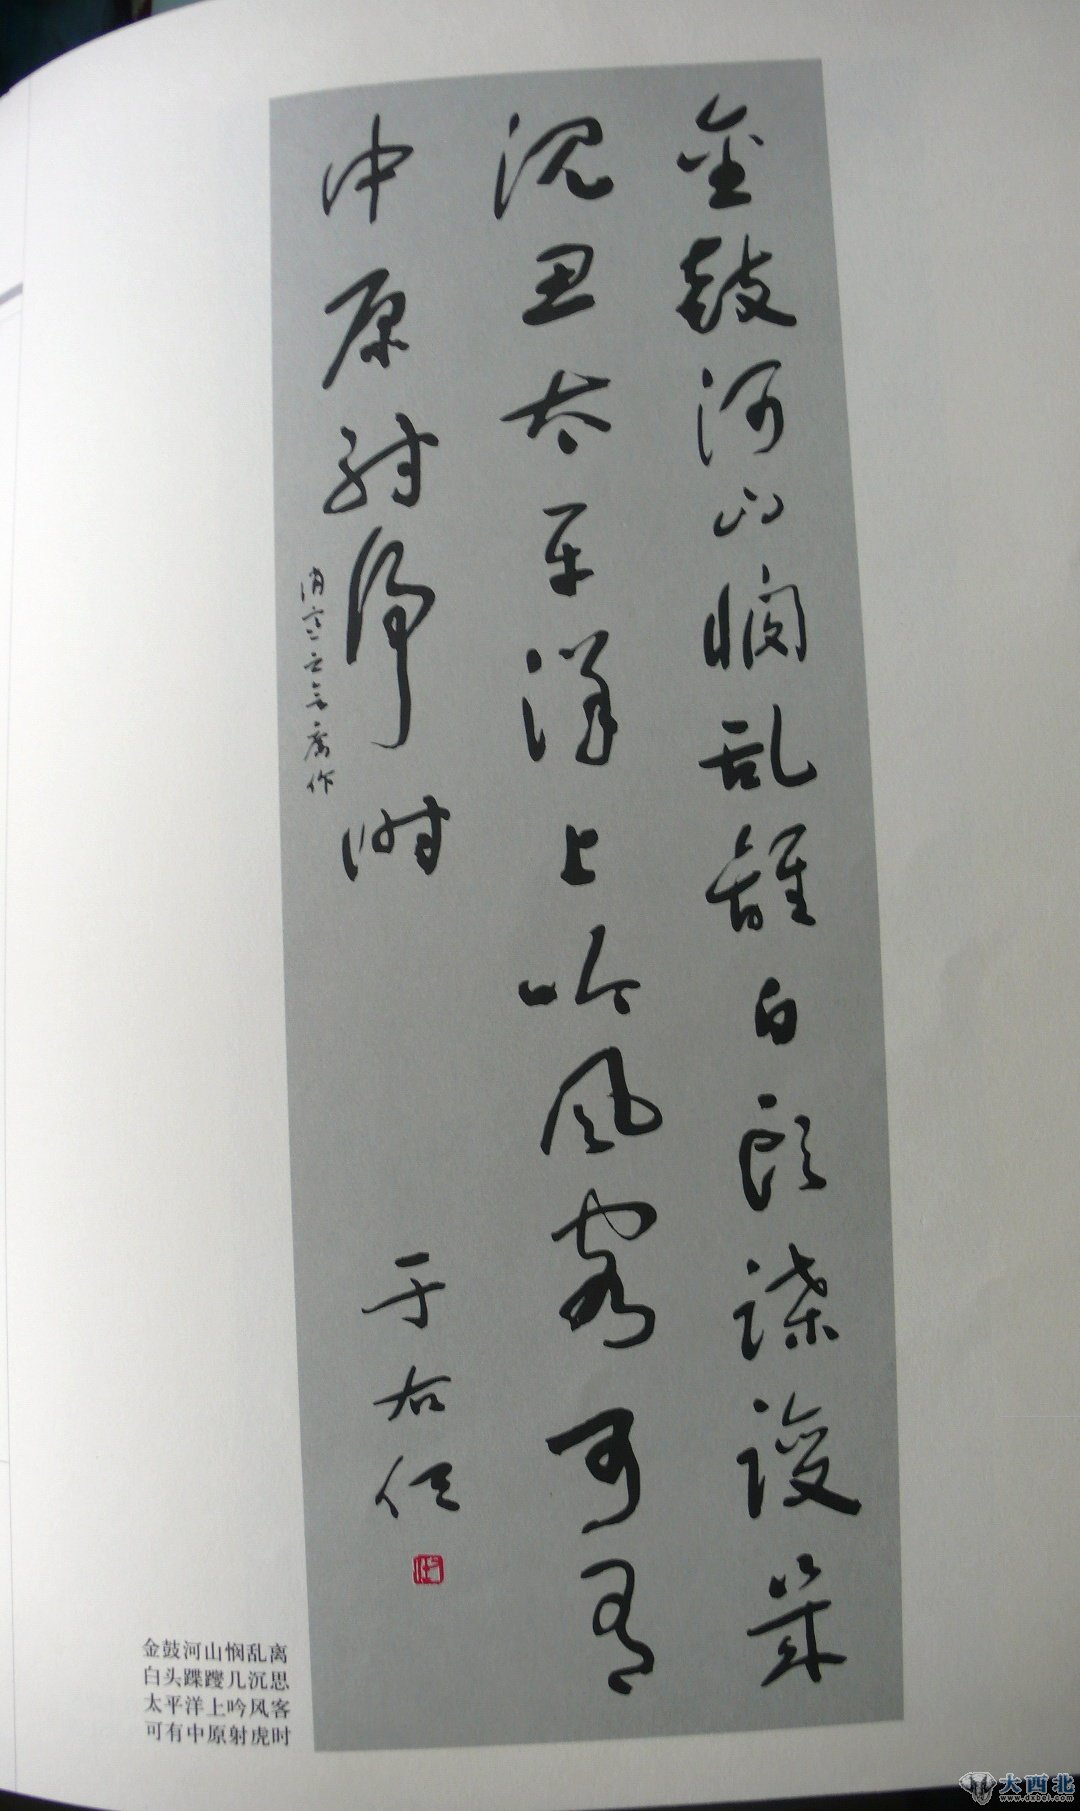 金鼓河山憫乱離白頭蹀躞幾
沈思太平洋上吟風客可有
中原射虎時
于右任
金鼓河山悯乱离
白头蹀躞几沉思
太平洋上吟风客
可有中原射虎时
大西北
www.dxbei.com